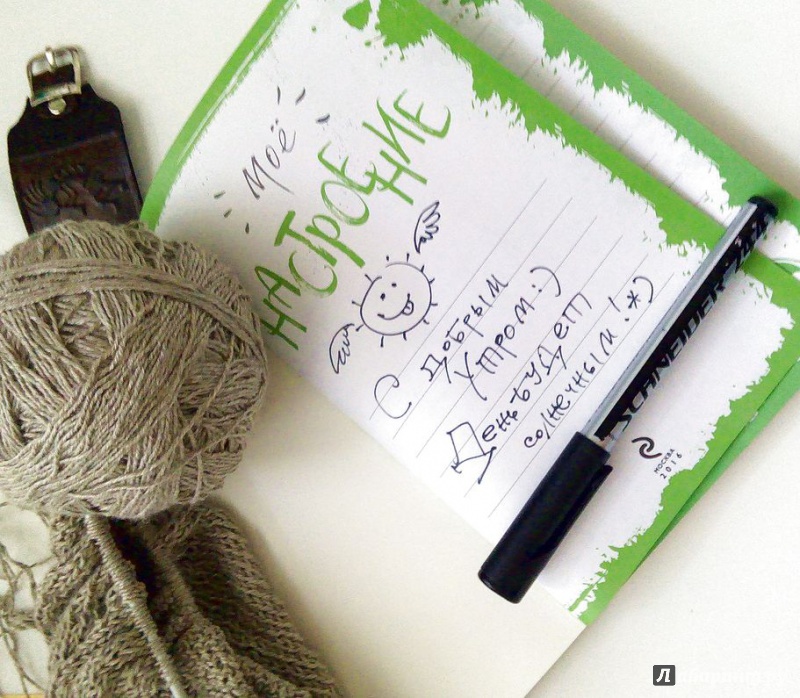 Моё
НАСТРОЕНИЕ
С добрым
утром :)
День будет
солнечным! *)
SCHNEIDER
МОСКВА
2016